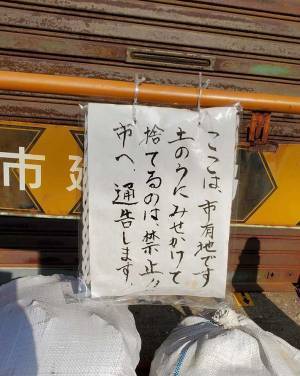 ここは、市有地です
土のうにみせかけて
捨てるのは、禁止!!
市へ、通告します。
市